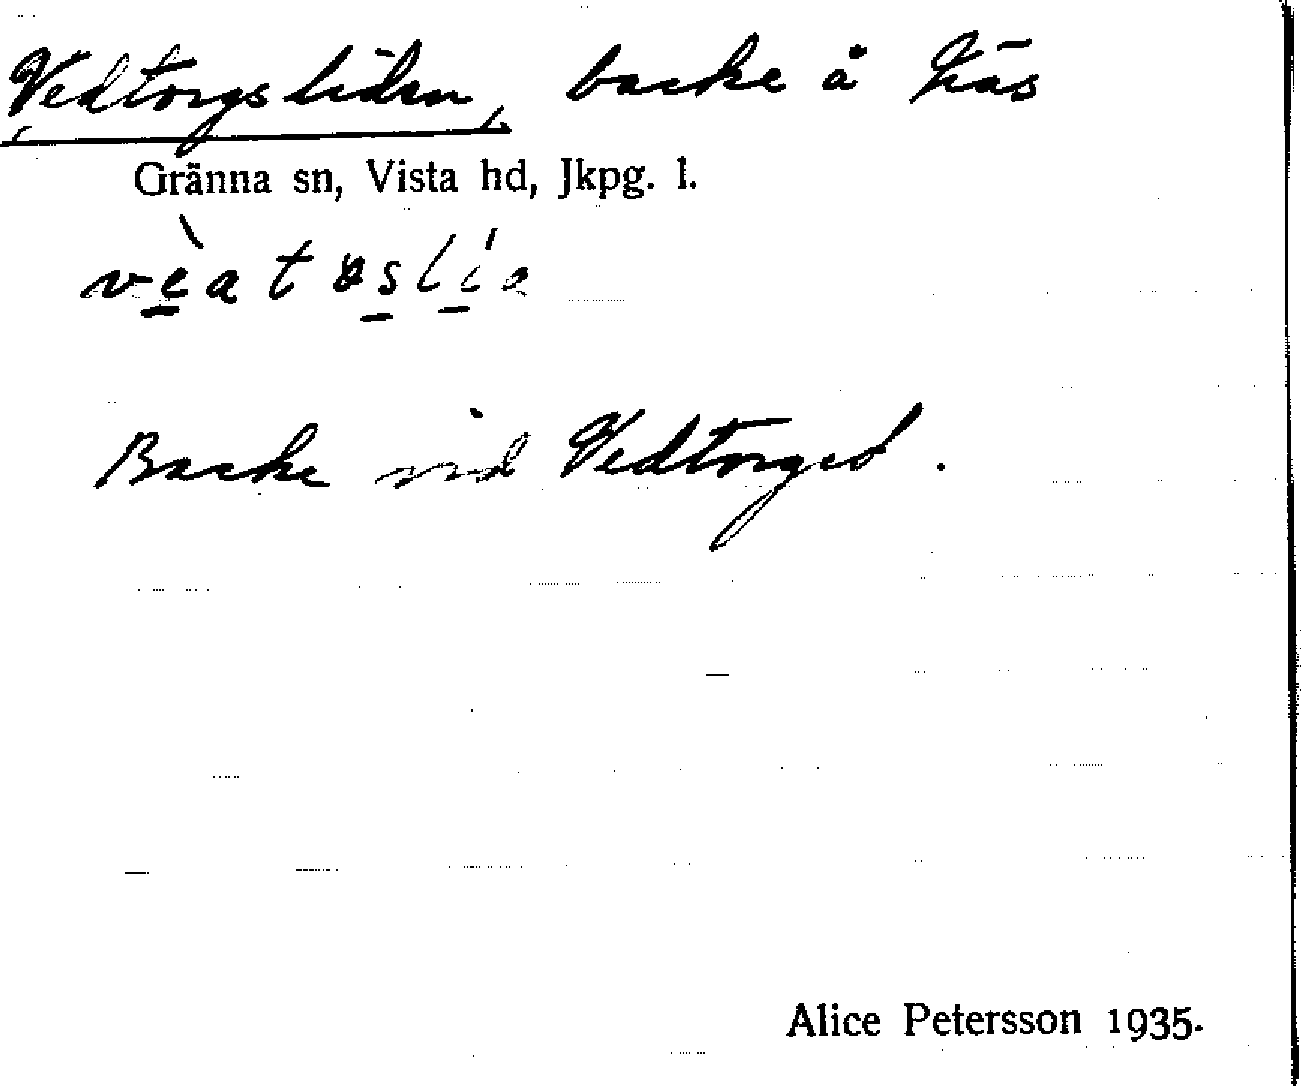 Vedtorgsliden, backe å Näs
Gränna sn, Vista hd, Jkpg. l.
Backe vid Vedtorget.
Alice Petersson 1935.